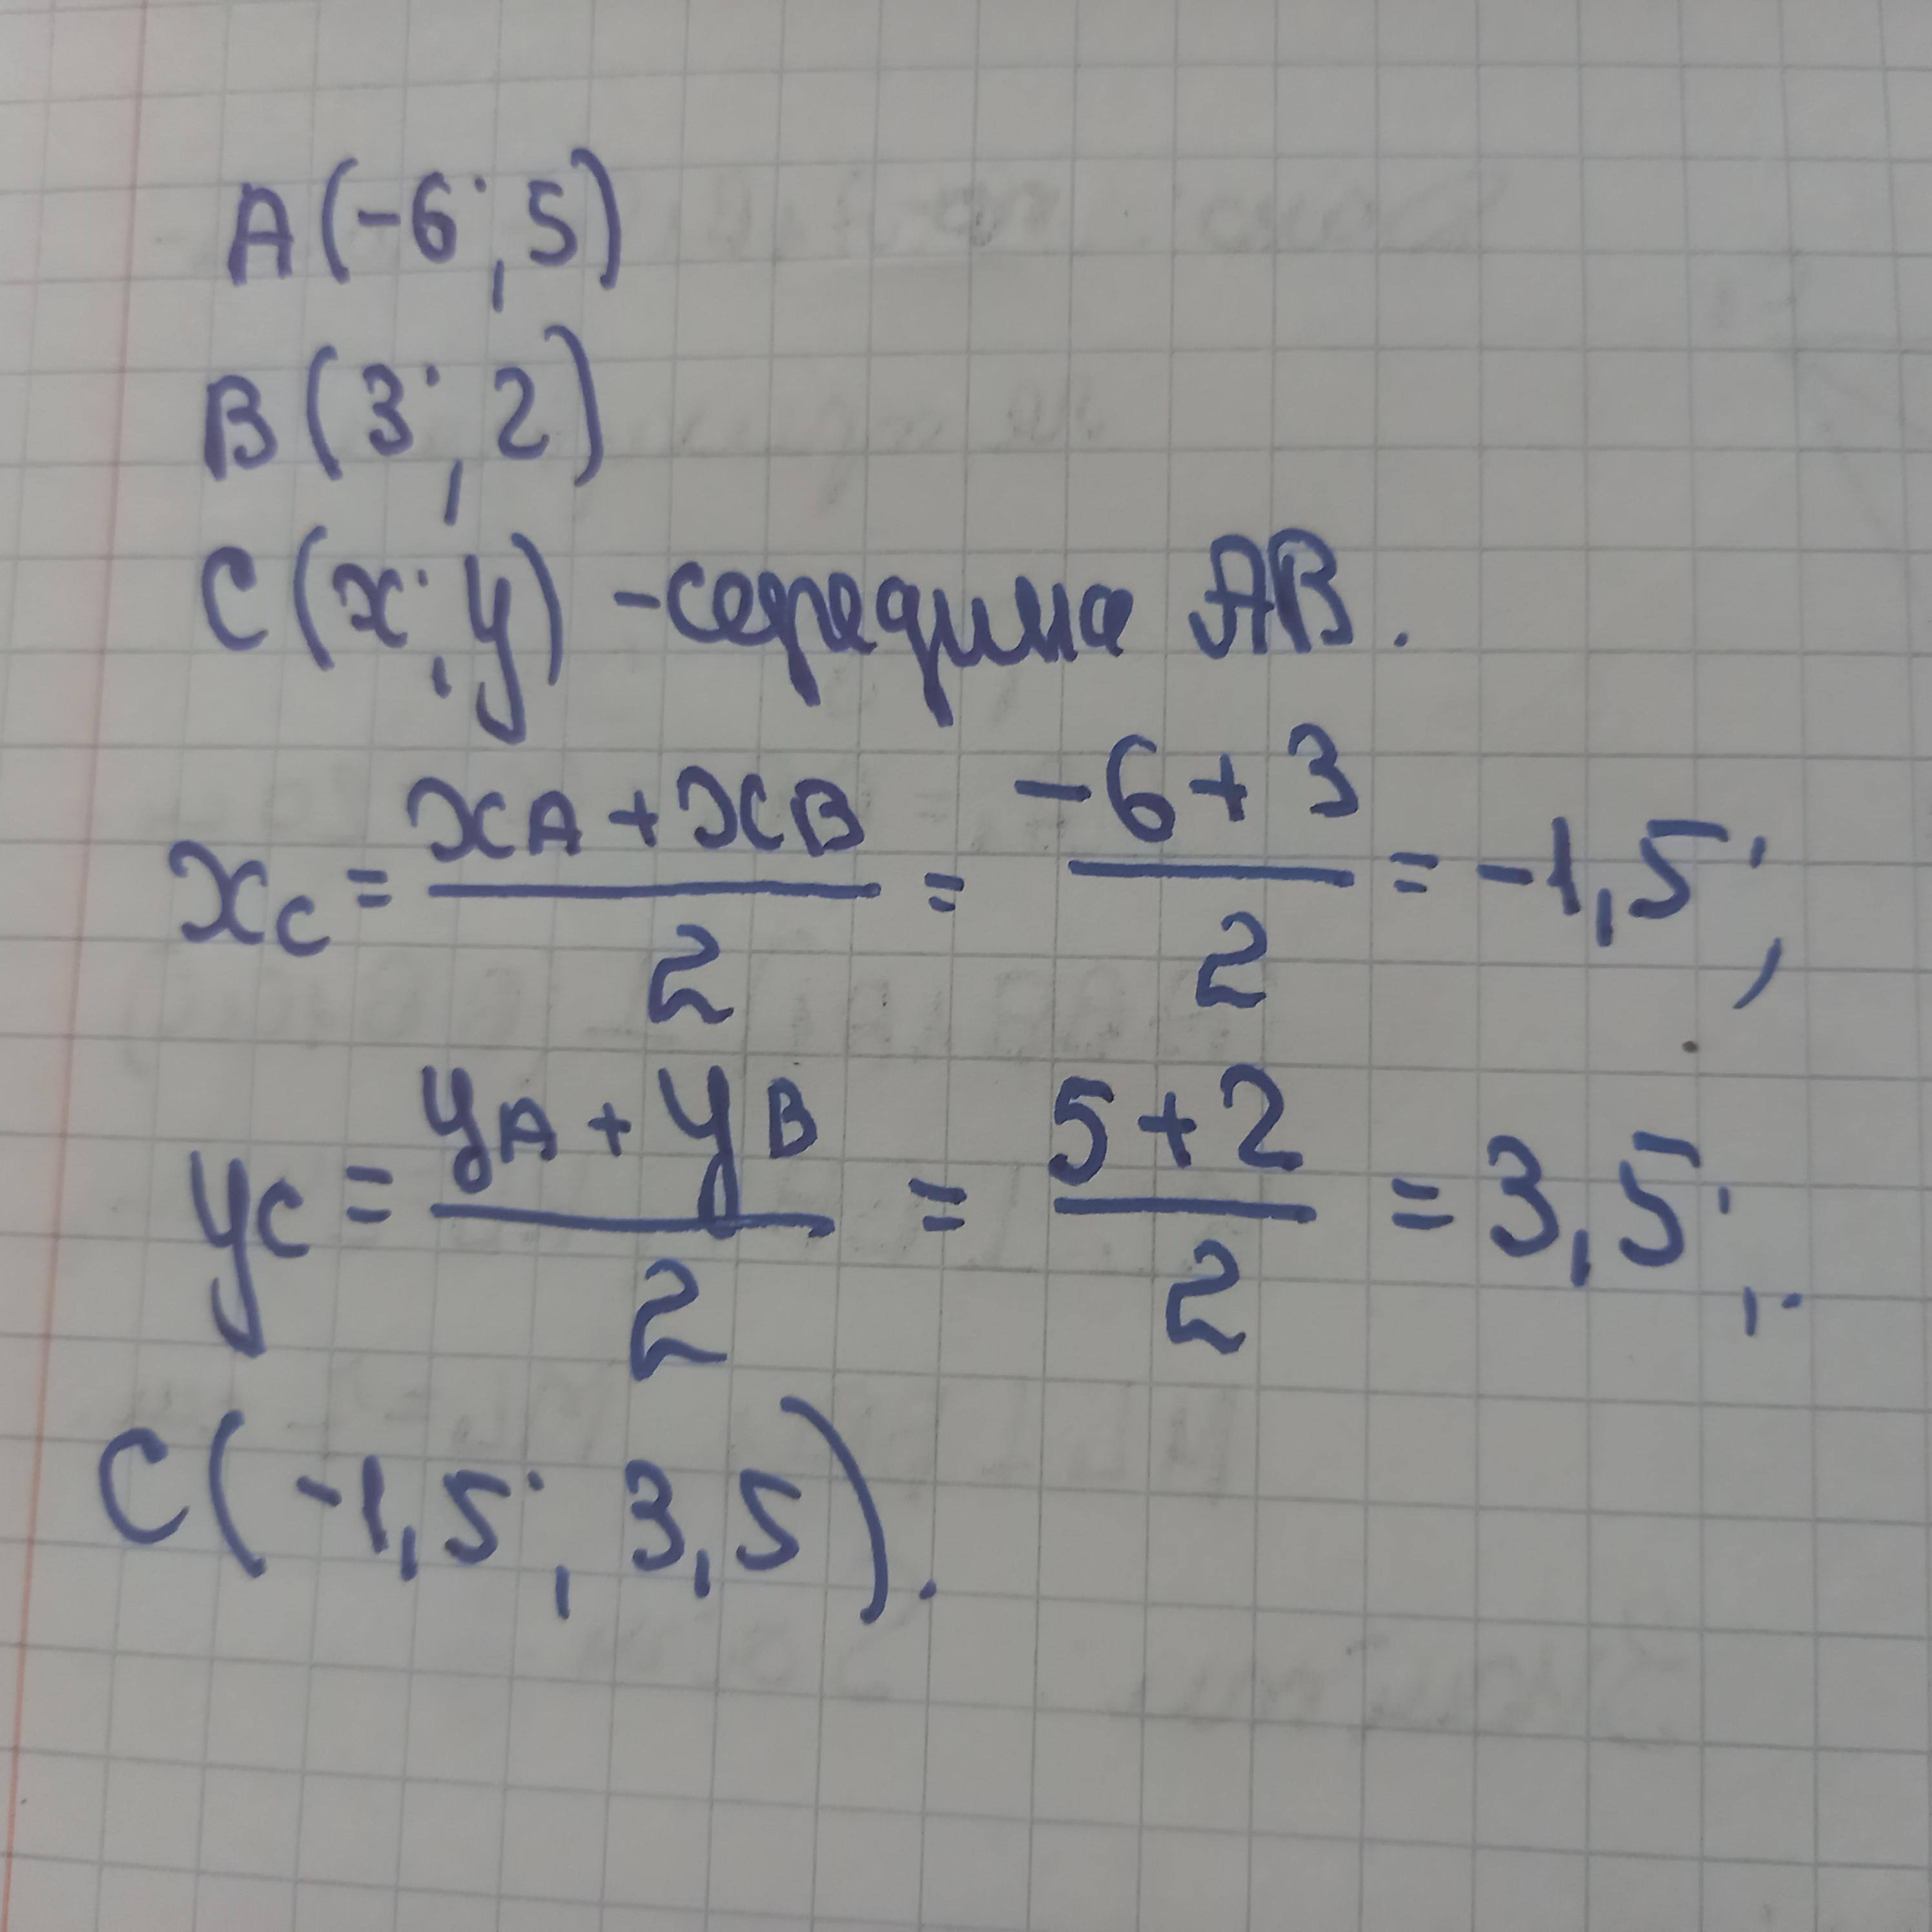 A(-6; 5)
B(3; 2)
C(x; y) - середина AB.
xc = xA + xB / 2 = -6 + 3 / 2 = -1,5;
yc = yA + yB / 2 = 5 + 2 / 2 = 3,5;.
C(-1,5; 3,5).